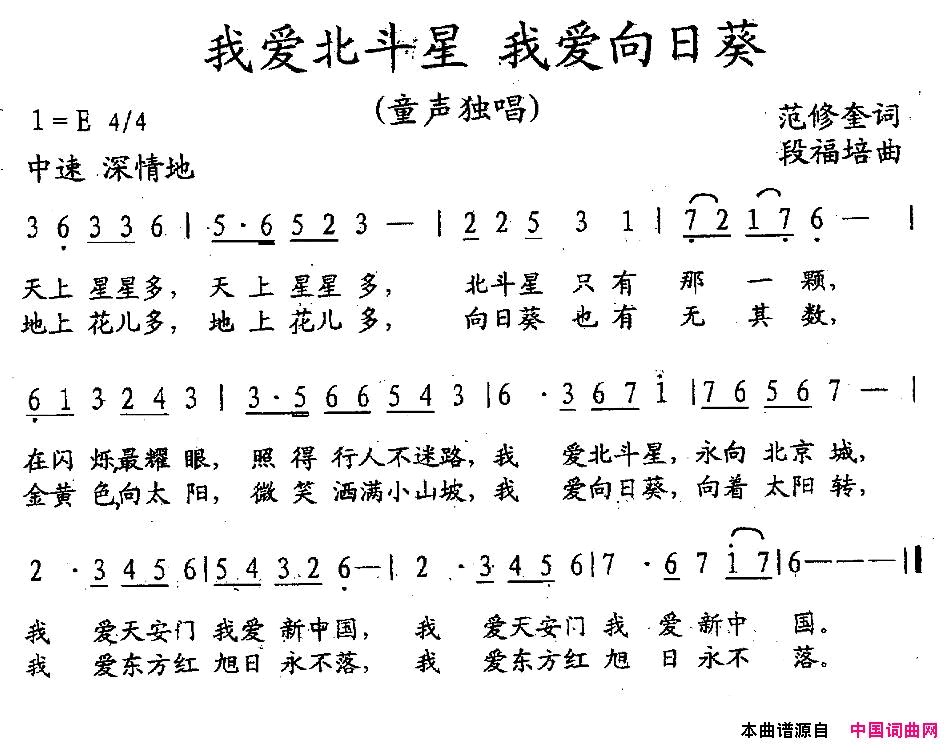 我爱北斗星 我爱向日葵
(童声独唱)
1=E 4/4
范修奎词
中速 深情地
段福培曲
3 6 3 3 6 | 5·6 5 2 3 — | 2 2 5 3 1 | 7 2 1 7 6 — |
天上 星星多, 天 上 星星 多, 北斗星 只 有 那 一 颗,
地上 花儿多, 地 上 花儿 多, 向日葵 也 有 无 其 数,
6 1 3 2 4 3 | 3·5 6 6 5 4 3 | 6 · 3 6 7 i | 7 6 5 6 7 — |
在闪 烁,最耀 眼, 照 得 行人不迷路, 我 爱北斗星, 永向 北京 城,
金黄 色,向太 阳, 微 笑 洒满小山坡, 我 爱向日葵, 向着 太阳 转,
2 · 3 4 5 6 | 5 4 3 2 6 — | 2 · 3 4 5 6 | 7 · 6 7 i 7 | 6 — — — ‖
我 爱天安门 我爱 新中国, 我 爱天安门 我 爱 新中 国。
我 爱东方红 旭日 永不落, 我 爱东方红 旭 日 永不 落。
本曲谱源自 中国词曲网